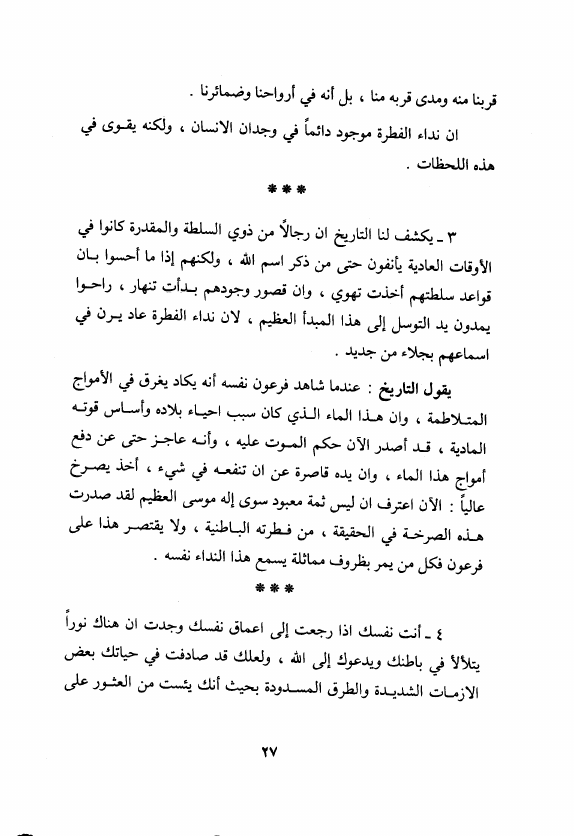 قربنا منه ومدى قربه منا ، بل أنه في أرواحنا وضمائرنا .
ان نداء الفطرة موجود دائماً في وجدان الانسان ، ولكنه يقـوى في
هذه اللحظات .
* * *
٣ ـ يكشف لنا التاريخ ان رجالاً من ذوي السلطة والمقدرة كانوا في
الأوقات العادية يأنفون حتى من ذكر اسم الله ، ولكنهم إذا ما أحسوا بـان
قواعد سلطتهم أخذت تهوي ، وان قصور وجودهم بـدأت تنهار ، راحـوا
يمدون يد التوسل إلى هذا المبدأ العظيم ، لان نداء الفطرة عاد يـرن في
اسماعهم بجلاء من جديد .
يقول التاريخ : عندما شاهد فرعون نفسه أنه يكاد يغرق في الأمواج
المتـلاطمة ، وان هـذا الماء الـذي كان سبب احيـاء بلاده وأسـاس قوتـه
المادية ، قـد أصدر الآن حكم المـوت عليه ، وأنـه عاجـز حتى عن دفع
أمواج هذا الماء ، وان يده قاصرة عن ان تنفعـه في شيء ، أخذ يصـرخ
عالياً : الآن اعترف ان ليس ثمة معبود سوى إله موسى العظيم لقد صدرت
هـذه الصرخـة في الحقيقة ، من فـطرته البـاطنية ، ولا يقتصـر هذا على
فرعون فكل من يمر بظروف مماثلة يسمع هذا النداء نفسه .
* * *
٤ ـ أنت نفسك اذا رجعت إلى اعماق نفسك وجدت ان هناك نوراً
يتلألأ في باطنك ويدعوك إلى الله ، ولعلك قد صادفت في حياتك بعض
الازمـات الشديـدة والطرق المسـدودة بحيث أنك يئست من العثـور على
٢٧